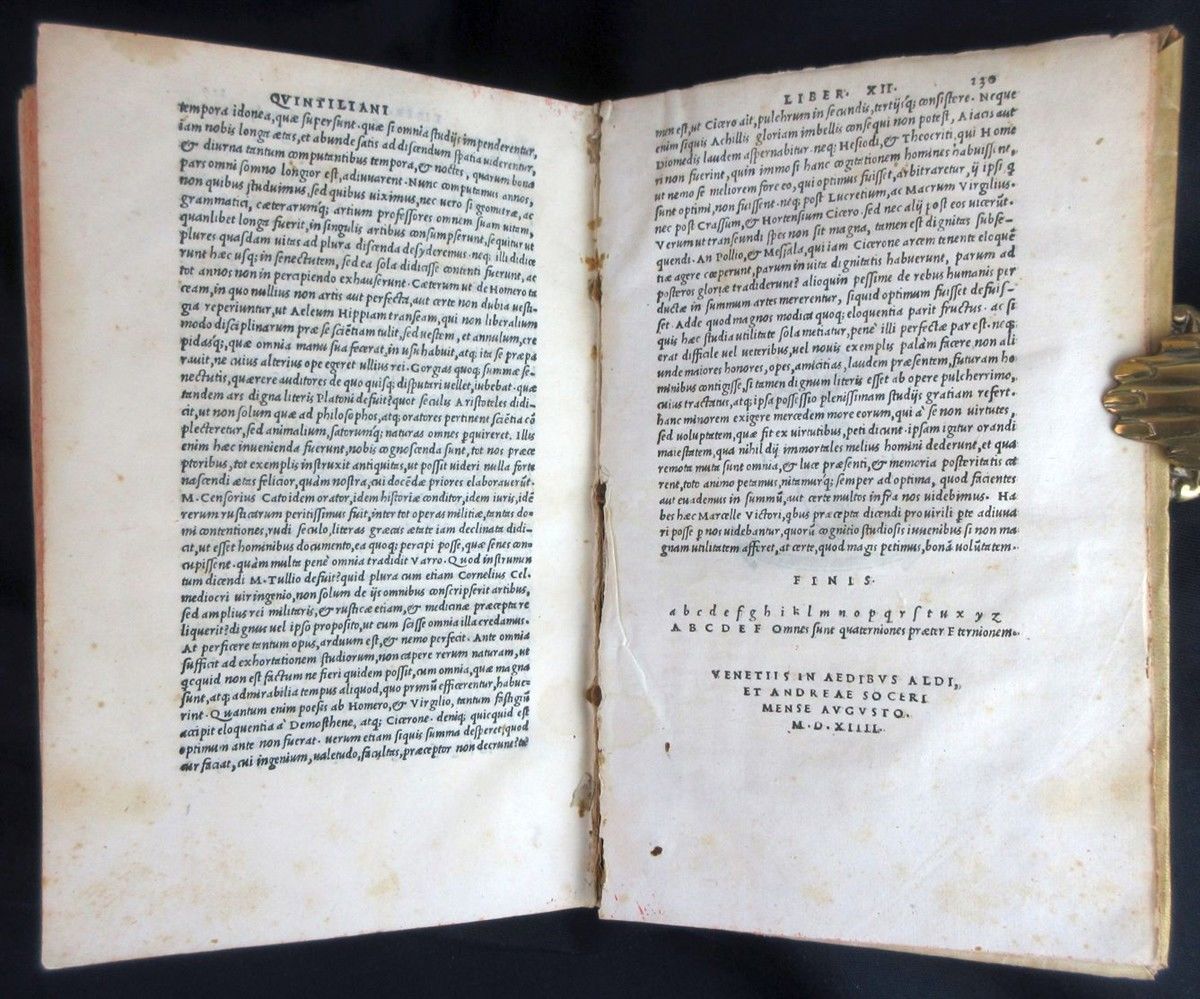 QVINTILIANI
tempora idonea, quæ supersunt. quæ si omnia studijs impenderentur,
iam nobis longa ætas, et abunde satis ad discendum spatia uiderentur,
& diurna tantum computantibus tempora, & noctes, quarum bona
pars omni somno longior est, adiuuarent. Nunc computamus annos,
non quibus studuimus, sed quibus uiximus, nec uero si geometræ, ac
grammatici, cæterarumq; artium professores omnem suam uitam,
quanlibet longa fuerit, in singulis artibus consumpserunt, sequitur ut
plures quasdam uitas ad plura discenda desyderemus. neq; illi didice
runt hæc usq; in senectutem, sed ea sola didicisse contenti fuerunt, ac
tot annos non in percipiendo exhauserunt. Cæterum ut de Homero ta
ceam, in quo nullius non artis aut perfecta, aut certe non dubia uesti-
gia reperiuntur, ut Aeleum Hippiam transeam, qui non liberalium
modo disciplinarum præ se sciẽtiam tulit, sed uestem, et annulum, cre
pidasq; quæ omnia manu sua fecerat, in usu habuit, atq; ita se præpa
rauit, ne cuius alterius ope egeret ullius rei. Gorgias quoq; summæ se-
nectutis, quærere auditores de quo quisq; disputari uellet, iubebat. quæ
tandem ars digna literis Platoni defuit? quot seculis Aristoteles didi-
cit, ut non solum quæ ad philosophos, atq; oratores pertinent sciẽtia cõ
plecteretur, sed animalium, satorumq; naturas omnes pquireret. Illis
enim hæc inuenienda fuerunt, nobis cognoscenda sunt, tot nos præce
ptoribus, tot exemplis instruxit antiquitas, ut possit uideri nulla forte
nascendi ætas felicior, quàm nostra, cui docẽdæ priores elaborauerũt.
M. Censorius Cato idem orator, idem historiæ conditor, idem iuris, idẽ
rerum rusticarum peritissimus fuit, inter tot operas militiæ, tantas do-
mi contentiones, rudi seculo, literas græcas ætate iam declinata didi-
cit, ut esset hominibus documento, ea quoq; percipi posse, quæ senes con-
cupissent. quàm multa penè omnia tradidit Varro. Quod instrumen
tum dicendi M. Tullio defuit? quid plura cum etiam Cornelius Cel.
mediocri uir ingenio, non solum de ijs omnibus conscripserit artibus,
sed amplius rei militaris, & rusticæ etiam, & medicinæ præcepta re
liquerit? dignus uel ipso proposito, ut eum scisse omnia illa credamus.
At perficere tantum opus, arduum est, & nemo perfecit. Ante omnia
sufficit ad exhortationem studiorum, non capere rerum naturam, ut
qcquid non est factum ne fieri quidem possit, cum omnia, quæ magna
sunt, atq; admirabilia tempus aliquod, quo primũ efficerentur, habue-
rint. Quantum enim poesis ab Homero, & Virgilio, tantum fastigiũ
accipit eloquentia à Demosthene, atq; Cicerone. deniq; quicquid est
optimum ante non fuerat. uerum etiam siquis summa desperet, quod
cur faciat, cui ingenium, ualetudo, facultas, præceptor non deerunt? ta
LIBER. XII. 230
men est, ut Cicero ait, pulchrum in secundis, tertijsq; consistere. Neque
enim siquis Achillis gloriam imbellis consequi non potest, Aiacis aut
Diomedis laudem aspernabitur. neq; Hesiodi, & Theocriti, qui Home
ri non fuerint, quin immo si hanc cogitationem homines habuissent,
ut nemo se meliorem fore eo, qui optimus fuisset, arbitraretur, ij ipsi q
sunt optimi, non fuissent. neq; post Lucretium, ac Macrum Virgilius.
nec post Crassum, & Hortensium Cicero. sed nec alij post eos uicerũt.
Verum ut transeundi spes non sit magna, tamen est dignitas subse-
quendi. An Pollio, & Messala, qui iam Cicerone arcem tenente eloquẽ
tiæ agere cœperunt, parum in uita dignitatis habuerunt, parum ad
posteros gloriæ tradiderunt? alioquin pessime de rebus humanis per
ductæ in summum artes mererentur, siquid optimum fuisset defuis-
set. Adde quod magnos modica quoq; eloquentia parit fructus. ac si
quis hæc studia utilitate sola metiatur, penè illi perfectæ par est. neq;
erat difficile uel ueteribus, uel nouis exemplis palàm facere, non ali
unde maiores honores, opes, amicitias, laudem præsentem, futuram ho
minibus contigisse, si tamen dignum literis esset ab opere pulcherrimo,
cuius tractatus, atq; ipsa possessio plenissimam studijs gratiam refert.
hanc minorem exigere mercedem more eorum, qui à se non uirtutes,
sed uoluptatem, quæ fit ex uirtutibus, peti dicunt. ipsam igitur orandi
maiestatem, qua nihil dij immortales melius homini dederunt, et qua
remota muta sunt omnia, & luce præsenti, & memoria posteritatis ca
rent, toto animo petamus, nitamurq; semper ad optima, quod facientes
aut euademus in summũ, aut certe multos infra nos uidebimus. Ha
bes hæc Marcelle Victori, qbus præcepta dicendi pro uirili pte adiuua
ri posse p nos uidebantur, quorũ cognitio studiosis iuuenibus si non ma
gnam utilitatem afferet, at certe, quod magis petimus, bonã uolũtatem.
FINIS.
a b c d e f g h i k l m n o p q r s t u x y z
A B C D E F Omnes sunt quaterniones præter F ternionem.
VENETIIS IN AEDIBVS ALDI,
ET ANDREAE SOCERI
MENSE AVGVSTO.
M. D. XIIII.